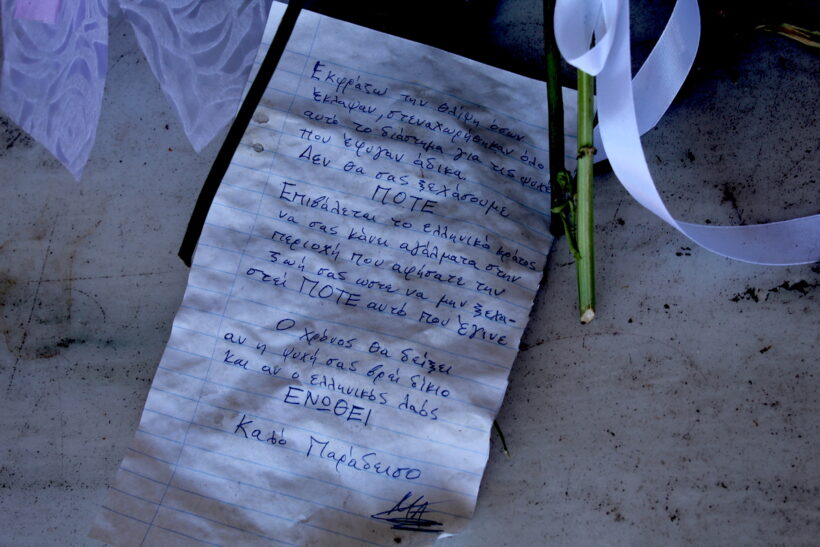 Εκφράζω την θλίψη όσων
έκλαψαν, στεναχωρήθηκαν όλο
αυτό το διάστημα για τις ψυχές
που έφυγαν άδικα.
Δεν θα σας ξεχάσουμε
ΠΟΤΕ
Επιβάλεται το ελληνικό κράτος
να σας κάνει αγάλματα στην
περιοχή που αφήσατε την
ζωή σας ώστε να μην ξεχα-
στεί ΠΟΤΕ αυτό που έγινε
Ο χρόνος θα δείξει
αν η ψυχή σας βρεί δίκιο
και αν ο ελληνικός λαός
ΕΝΩΘΕΙ
Καλό Παράδεισο